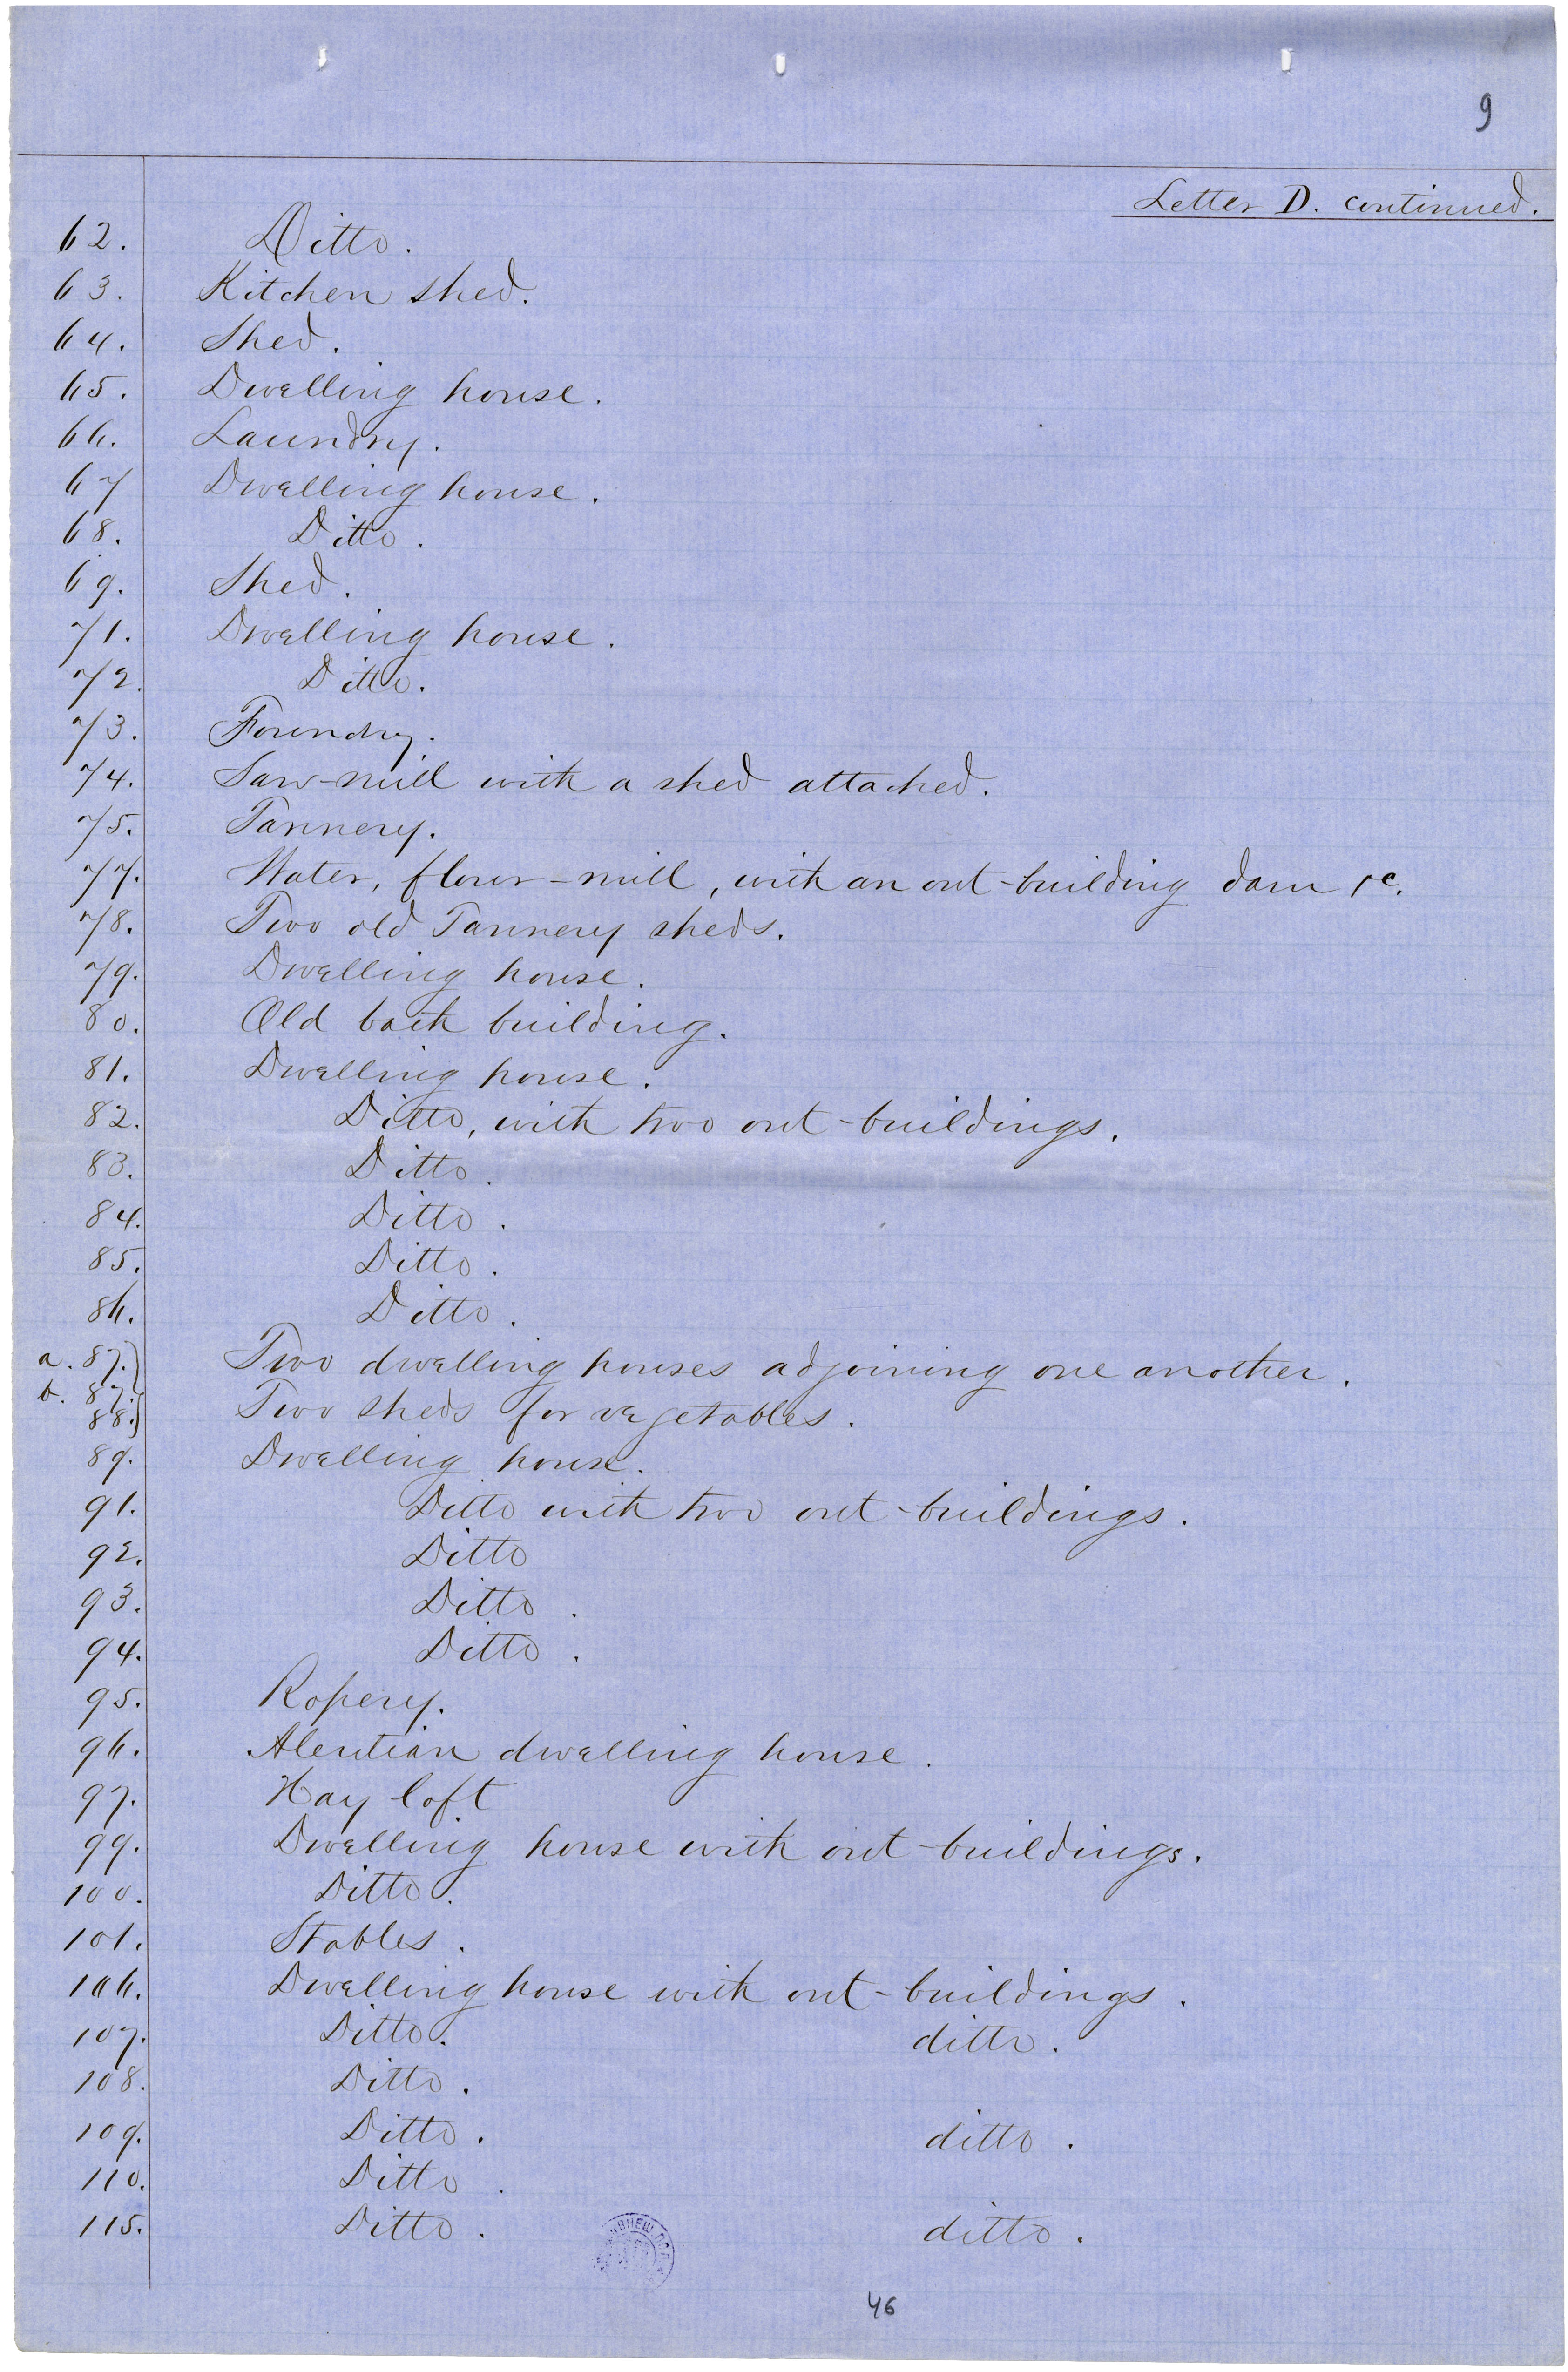 9
Letter D. continued.
62. Ditto.
63. Kitchen shed.
64. Shed.
65. Dwelling house.
66. Laundry.
67 Dwelling house.
68. Ditto.
69. Shed.
71. Dwelling house.
72. Ditto.
73. Foundry.
74. Saw-mill with a shed attached.
75. Tannery.
77. Water, flour-mill, with an out-building dam &c.
78. Two old Tannery sheds.
79. Dwelling house.
80. Old bath building.
81. Dwelling house.
82. Ditto, with two out-buildings.
83. Ditto.
84. Ditto.
85. Ditto.
86. Ditto.
a. 87.) Two dwelling houses adjoining one another.
b. 87.
88.} Two sheds for vegetables.
89. Dwelling house.
91. Ditto with two out-buildings.
92. Ditto
93. Ditto.
94. Ditto.
95. Ropery.
96. Aleutian dwelling house.
97. Hay loft
99. Dwelling house with out-buildings.
100. Ditto.
101. Stables.
106. Dwelling house with out-buildings.
107. Ditto. ditto.
108. Ditto.
109. Ditto. ditto.
110. Ditto.
115. Ditto. ditto.
46